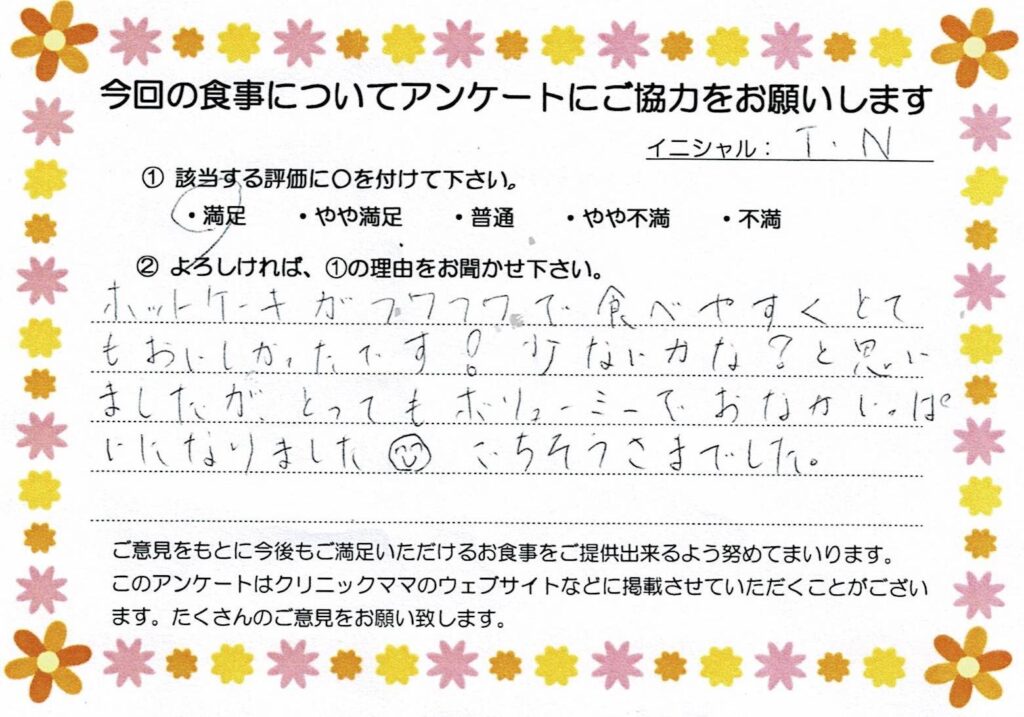 今回の食事についてアンケートにご協力をお願いします
イニシャル： T．N
① 該当する評価に〇を付けて下さい。
・満足 ・やや満足 ・普通 ・やや不満 ・不満
② よろしければ、①の理由をお聞かせ下さい。
ホットケーキがフワフワで食べやすくとて
もおいしかったです！少ないかな？と思い
ましたが、とってもボリューミーでおなかいっぱ
いになりました ごちそうさまでした。
ご意見をもとに今後もご満足いただけるお食事をご提供出来るよう努めてまいります。
このアンケートはクリニックママのウェブサイトなどに掲載させていただくことがござい
ます。たくさんのご意見をお願い致します。